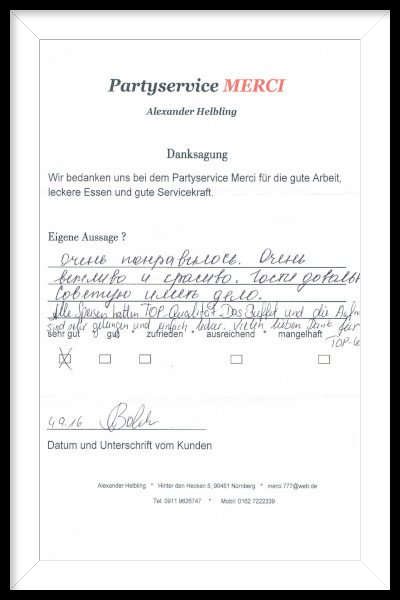 Partyservice MERCI
Alexander Helbling
Danksagung
Wir bedanken uns bei dem Partyservice Merci für die gute Arbeit,
leckere Essen und gute Servicekraft.
Eigene Aussage ?
Очень понравилось. Очень
вежливо и красиво. Гости довольн
Советую иметь дело.
Alle Speisen hatten TOP-Qualität. Das Buffet und die
sind sehr gelungen und einfach lecker. Vielen lieben Dank für
TOP-
sehr gut * gut * zufrieden * ausreichend * mangelhaft
4.9.16
Datum und Unterschrift vom Kunden
Alexander Helbling * Hinter den Hecken 5, 90451 Nürnberg * merci.777@web.de
Tel: 0911 9626747 * Mobil: 0162 7222339